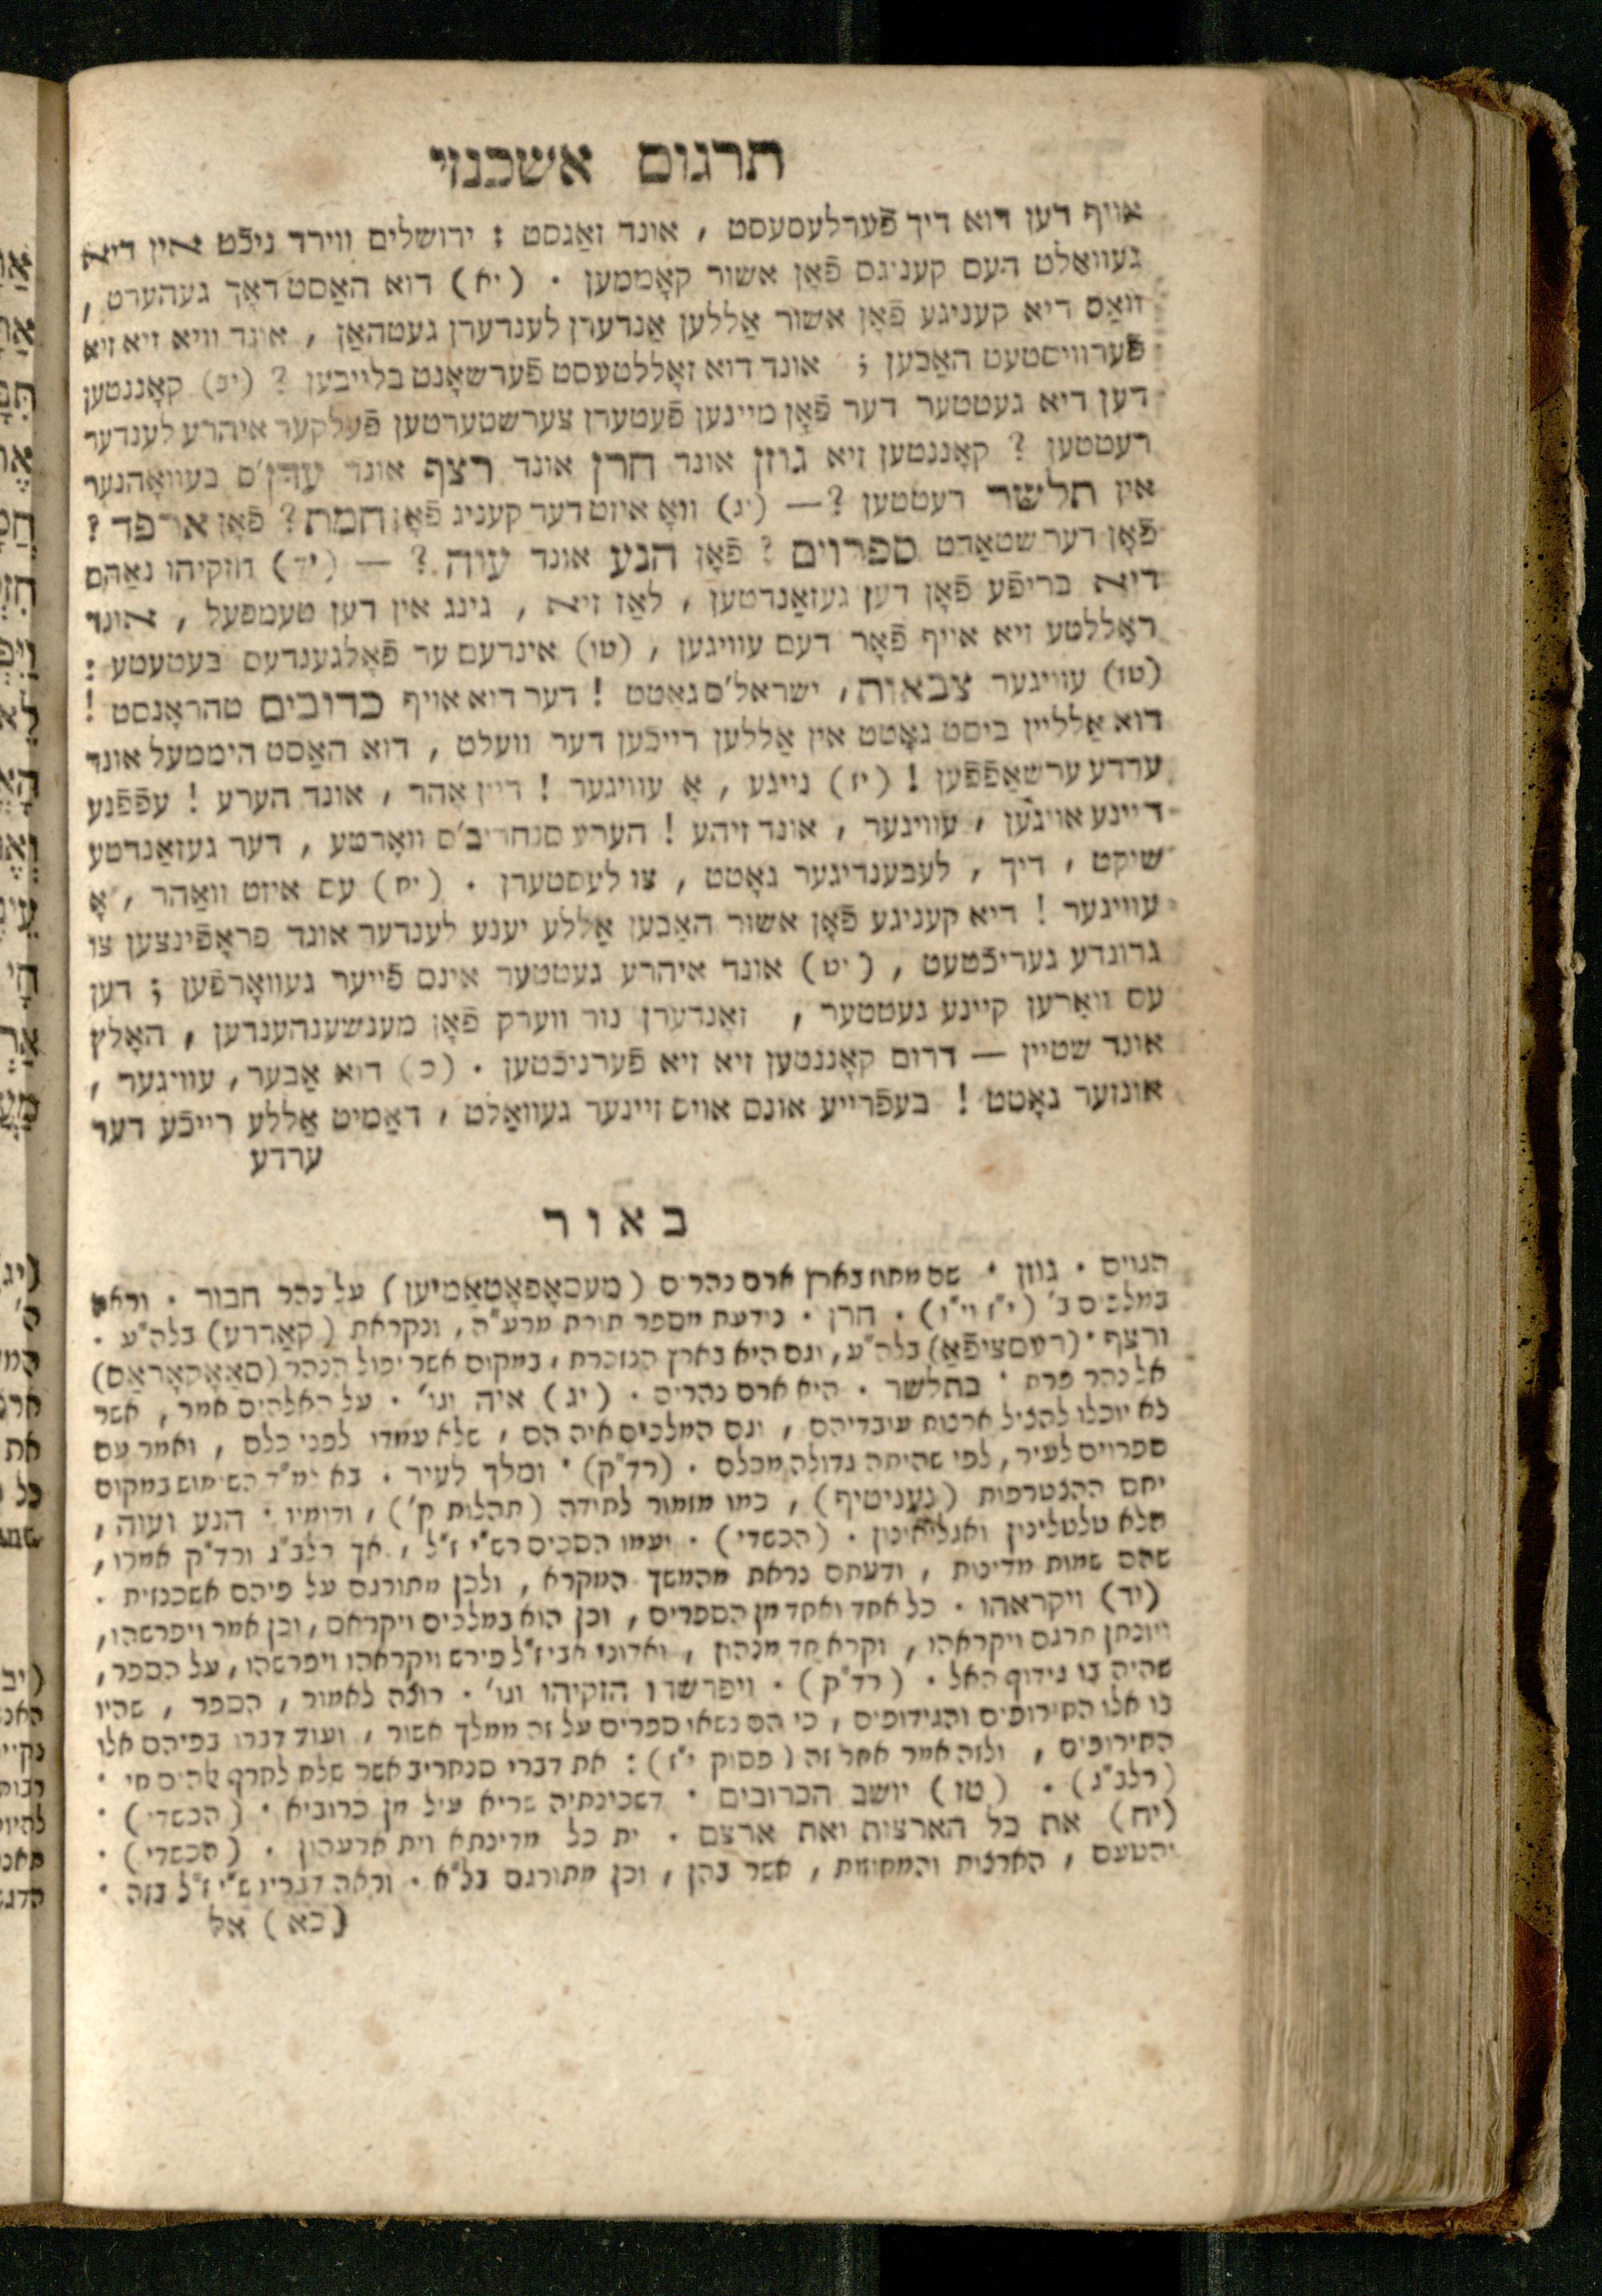 תרגום אשכנזי
אויף דען דוא דיך פֿערלעסעסט , אונד זאַגסט : ירושלים ווירד ניכֿט אין דיא
געוואַלט העס קעניגס פֿאָן אשור קאָממען . (יא) דוא האַסט דאָך געהערט ,
וואַס דיא קעניגע פֿאָן אשור אַללען אַנדערן לענדערן געטהאַן , אונד וויא זיא זיא
פֿערוויסטעט האַבען ; אונד דוא זאָללטעסט פֿערשאָנט בלייבען ? (יב) קאָננטען
דען דיא געטטער דער פֿאָן מיינען פֿעטערן צערשטערטען פֿעלקער איהרע לענדער
רעטטען ? קאָננטען זיא גוזן אונד חרן אונד רצף אונד עדן'ס בעוואָהנער
אין תלשר רעטטען ? — (יג) וואָ איזט דער קעניג פֿאָן חמת ? פֿאָן ארפד ?
פֿאָן דער שטאַדט ספרוים ? פֿאָן הנע אונד עוה ? — (יד) חזקיהו נאַהם
דיא בריפֿע פֿאָן דען געזאַנדטען , לאַז זיא , גינג אין דען טעמפעל , אונד
ראָללטע זיא אויף פֿאָר דעם עוויגען , (טו) אינדעם ער פֿאָלגענדעס בעטעטע :
(טז) עוויגער צבאות , ישראל'ס גאָטט ! דער דיא אויף כרובים טהראָנסט !
דוא אַלליין ביסט גאָטט אין אַללען רייכֿען דער וועלט , דוא האַסט היממעל אונד
ערדע ערשאַפֿפֿען ! (יז) נייגע , אָ עוויגער ! דיין אָהר , אונד הערע ! עפֿפֿנע
דיינע אויגען , עוויגער , אונד זיהע ! הערע סנחריב'ס וואָרטע , דער געזאַנדטע
שיקט , דיך , לעבענדיגער גאָטט , צו לעסטערן . (יח) עס איזט וואַהר , אָ
עוויגער ! דיא קעניגע פֿאָן אשור האַבען אַללע יענע לענדער אונד פראָפֿינצען צו
גרונדע געריכֿטעט , (יט) אונד איהרע געטטער אינס פֿייער געוואָרפֿען ; דען
עס וואַרען קיינע געטטער , זאָנדערן נור ווערק פֿאָן מענשענהענדען , האָלץ
אונד שטיין — דרום קאָננטען זיא זיא פֿערניכֿטען . (כ) דוא אַבער , עוויגער ,
אונזער גאָטט ! בעפֿרייע אונס אויס זיינער געוואַלט , דאַמיט אַללע רייכֿע דער
ערדע
באור
הגוים . גוזן . שם מחוז בארץ ארם נהרים (מעסאָפּאָטאַמיען) על נהר חבור . וראה
במלכים ב' (י"ז וי"ו) . חרן . נידעת מספר תורת מרע"ה , ונקראת (קאַררע) בלה"ע .
ורצף . (רעסציפֿאַ) בלה"ע , וגם היא בארץ הנזכרת , במקום אשר יפול הנהר (סאַאָקאָראַס)
אל נהר פרת . בתלשר . היא ארם נהרים . (יג) איה וגו' . על האלהים אמר , אשר
לא יוכלו להציל ארצות עובדיהם , וגם המלכים איה הם , שלא עמדו לפני כלם , ואמר עם
ספרוים לעיר , לפי שהיתה גדולה מכלם . (רד"ק) . ומלך לעיר . בא למ"ד השימוש במקום
יחס ההצטרפות (געניטיף) , כמו מזמור לתודה (תהלות ק') , ודומיו . הנע ועוה ,
הלא טלטלינון ואגליאינון . (הכשדי) . ועמו הסכים רש"י ז"ל , אך רלב"ג ורד"ק אמרו ,
שהם שמות מדינות , ודעתם נראת מהמשך המקרא , ולכן מתורגם על פיהם אשכנזית .
(יד) ויקראהו . כל אחד ואחד מן הספרים , וכן הוא במלכים ויקראם , וכן אמר ויפרשהו ,
ויונתן תרגם ויקראהו , וקרא חד מנהון , ואדוני אבי ז"ל פירש ויקראהו ויפרשהו , על הספר ,
שהיה בו גידוף האל . (רד"ק) . ויפרשהו חזקיהו וגו' . רוצה לאמור , הספר , שהיו
בו אלו החירופים והגידופים , כי הם נשאו ספרים על זה ממלך אשור , ועוד דברו בפיהם אלו
החירופים , ולזה אמר אחר זה (פסוק י"ז) : את דברי סנחריב אשר שלח לחרף אלהים חי .
(רלב"ג) . (טז) יושב הכרובים . דשכינתיה שריא עיל מן כרוביא . (הכשדי) .
(יח) את כל הארצות ואת ארצם . ית כל מדינתא וית ארעהון . (הכשדי) .
והטעם , הארצות והמחוזות , אשר בהן , וכן מתורגם בל"א . וראה דברי רש"י ז"ל בזה .
(כא) אל